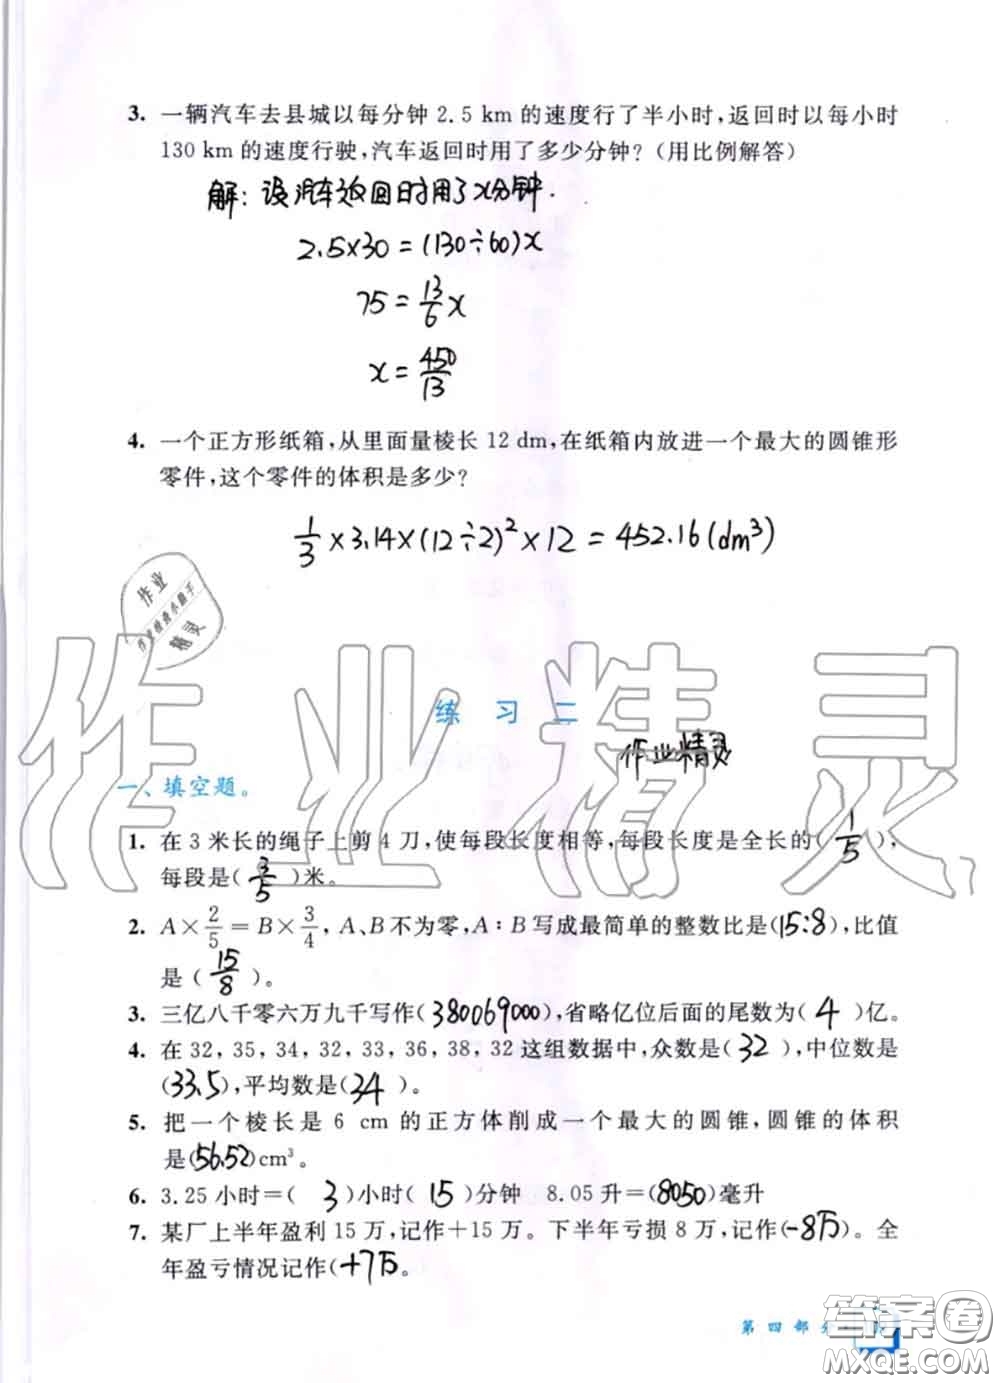 3. 一辆汽车去县城以每分钟 2.5 km 的速度行了半小时,返回时以每小时
130 km 的速度行驶,汽车返回时用了多少分钟?(用比例解答)
解:设汽车返回时用了x分钟.
2.5×30=(130÷60)x
75=13/6x
x=450/13
4. 一个正方形纸箱,从里面量棱长 12 dm,在纸箱内放进一个最大的圆锥形
零件,这个零件的体积是多少?
1/3×3.14×(12÷2)²×12=452.16(dm³)
作业
作业检查小助手
精灵
作业精灵
练习二
作业精灵
一、填空题。
1. 在 3 米长的绳子上剪 4 刀,使每段长度相等,每段长度是全长的( 1/5 ),
每段是( 3/5 )米。
2. A×2/5=B×3/4,A、B不为零,A:B写成最简单的整数比是(15:8),比值
是( 15/8 )。
3. 三亿八千零六万九千写作(380069000),省略亿位后面的尾数为( 4 )亿。
4. 在 32, 35, 34, 32, 33, 36, 38, 32 这组数据中,众数是( 32 ),中位数是
(33.5),平均数是(34 )。
5. 把一个棱长是 6 cm 的正方体削成一个最大的圆锥,圆锥的体积
是(56.52)cm³。
6. 3.25 小时=( 3 )小时( 15 )分钟 8.05 升=(8050)毫升
7. 某厂上半年盈利 15 万,记作+15 万。下半年亏损 8 万,记作(-8万)。全
年盈亏情况记作(+7万)。
第四部分
答案圈
MXQE.COM